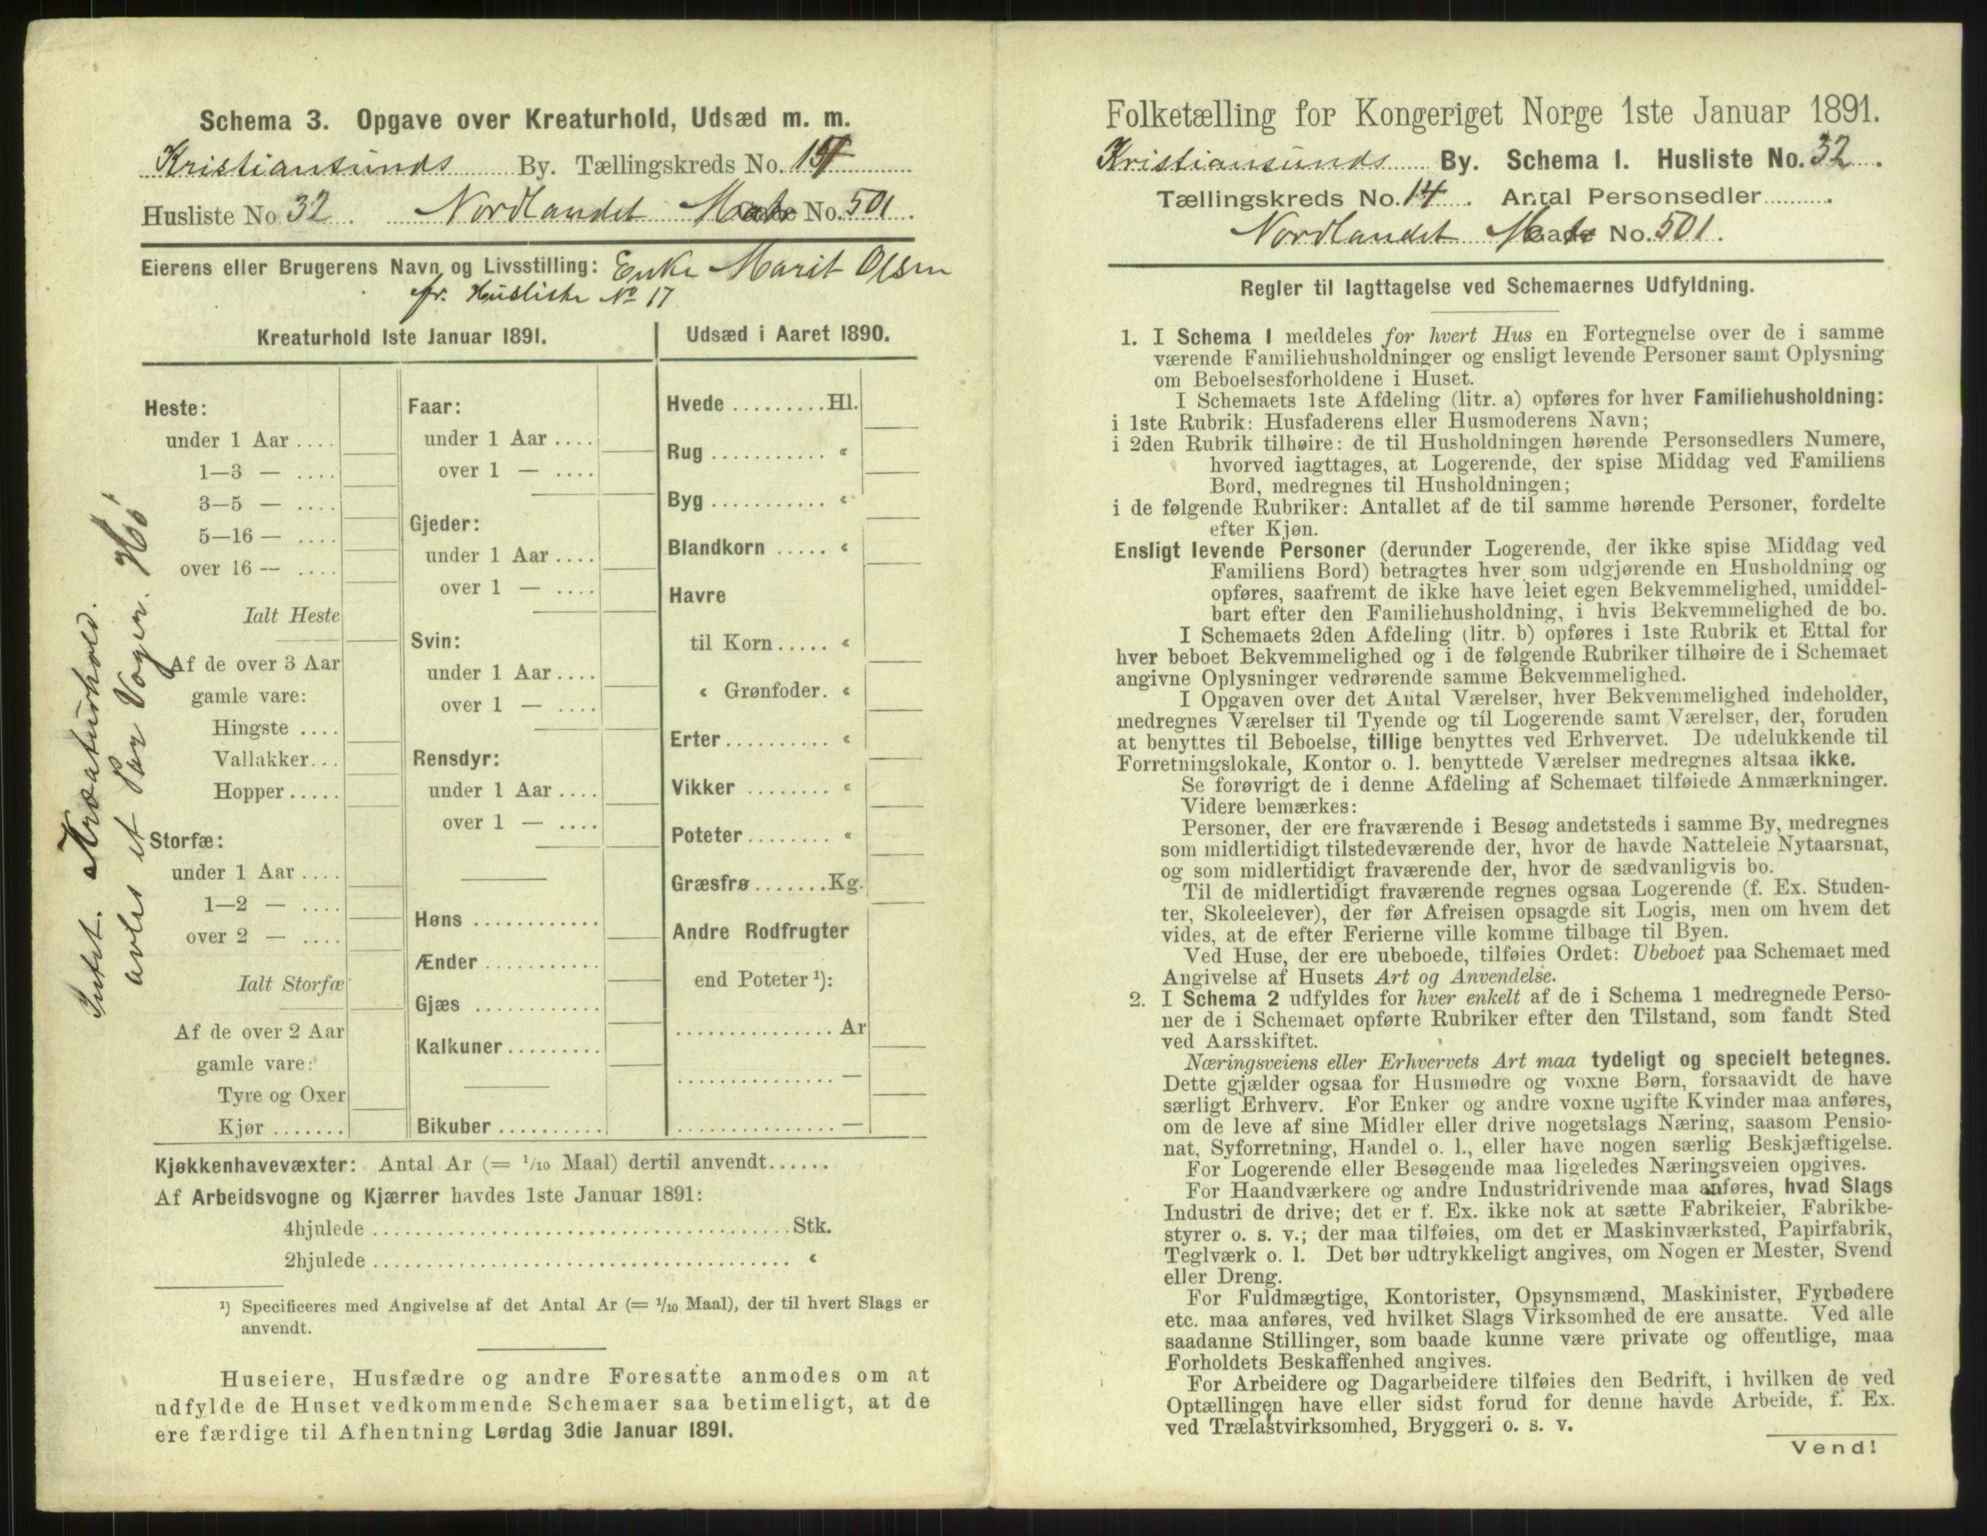 Schema 3. Opgave over Kreaturhold, Udsæd m. m.
Kristiansunds By. Tællingskreds No. 14
Husliste No. 32. Nordlandet No. 501.
Eierens eller Brugerens Navn og Livsstilling: Enke Marit Olsen
fr. Husliste No 17
Kreaturhold 1ste Januar 1891.
Heste:
under 1 Aar ....
1—3 — ....
3—5 — ....
5—16 — ....
over 16 — ....
Ialt Heste
Af de over 3 Aar
gamle vare:
Hingste ....
Vallakker...
Hopper.....
Storfæ:
under 1 Aar ....
1—2 — ....
over 2 — ....
Ialt Storfæ
Af de over 2 Aar
gamle vare:
Tyre og Oxer
Kjør .......
Faar:
under 1 Aar ....
over 1 — ....
Gjeder:
under 1 Aar ....
over 1 — ....
Svin:
under 1 Aar ....
over 1 — ....
Rensdyr:
under 1 Aar ....
over 1 — ....
Høns ............
Ænder ...........
Gjæs ............
Kalkuner.........
Bikuber ..........
Udsæd i Aaret 1890.
Hvede .........Hl.
Rug ........... «
Byg ........... «
Blandkorn ..... «
Havre
til Korn ..... «
« Grønfoder. «
Erter.......... «
Vikker ........ «
Poteter ....... «
Græsfrø.......Kg.
Andre Rodfrugter
end Poteter ¹):
............... Ar
............... —
............... —
Intet Kreaturhold.
avles et Par Voger. Hö
Kjøkkenhavevæxter: Antal Ar (= 1/10 Maal) dertil anvendt......
Af Arbeidsvogne og Kjærrer havdes 1ste Januar 1891:
4hjulede ........................................Stk.
2hjulede ........................................ «
¹) Specificeres med Angivelse af det Antal Ar (= 1/10 Maal), der til hvert Slags er
anvendt.
Huseiere, Husfædre og andre Foresatte anmodes om at
udfylde de Huset vedkommende Schemaer saa betimeligt, at de
ere færdige til Afhentning Lørdag 3die Januar 1891.
Folketælling for Kongeriget Norge 1ste Januar 1891.
Kristiansunds By. Schema I. Husliste No. 32.
Tællingskreds No. 14. Antal Personsedler..........
Nordlandet No. 501.
Regler til Iagttagelse ved Schemaernes Udfyldning.
1. I Schema I meddeles for hvert Hus en Fortegnelse over de i samme
værende Familiehusholdninger og ensligt levende Personer samt Oplysning
om Beboelsesforholdene i Huset.
I Schemaets 1ste Afdeling (litr. a) opføres for hver Familiehusholdning:
i 1ste Rubrik: Husfaderens eller Husmoderens Navn;
i 2den Rubrik tilhøire: de til Husholdningen hørende Personsedlers Numere,
hvorved iagttages, at Logerende, der spise Middag ved Familiens
Bord, medregnes til Husholdningen;
i de følgende Rubriker: Antallet af de til samme hørende Personer, fordelte
efter Kjøn.
Ensligt levende Personer (derunder Logerende, der ikke spise Middag ved
Familiens Bord) betragtes hver som udgjørende en Husholdning og
opføres, saafremt de ikke have leiet egen Bekvemmelighed, umiddel-
bart efter den Familiehusholdning, i hvis Bekvemmelighed de bo.
I Schemaets 2den Afdeling (litr. b) opføres i 1ste Rubrik et Ettal for
hver beboet Bekvemmelighed og i de følgende Rubriker tilhøire de i Schemaet
angivne Oplysninger vedrørende samme Bekvemmelighed.
I Opgaven over det Antal Værelser, hver Bekvemmelighed indeholder,
medregnes Værelser til Tyende og til Logerende samt Værelser, der, foruden
at benyttes til Beboelse, tillige benyttes ved Erhvervet. De udelukkende til
Forretningslokale, Kontor o. l. benyttede Værelser medregnes altsaa ikke.
Se forøvrigt de i denne Afdeling af Schemaet tilføiede Anmærkninger.
Videre bemærkes:
Personer, der ere fraværende i Besøg andetsteds i samme By, medregnes
som midlertidigt tilstedeværende der, hvor de havde Natteleie Nytaarsnat,
og som midlertidigt fraværende der, hvor de sædvanligvis bo.
Til de midlertidigt fraværende regnes ogsaa Logerende (f. Ex. Studen-
ter, Skoleelever), der før Afreisen opsagde sit Logis, men om hvem det
vides, at de efter Ferierne ville komme tilbage til Byen.
Ved Huse, der ere ubeboede, tilføies Ordet: Ubeboet paa Schemaet med
Angivelse af Husets Art og Anvendelse.
2. I Schema 2 udfyldes for hver enkelt af de i Schema 1 medregnede Perso-
ner de i Schemaet opførte Rubriker efter den Tilstand, som fandt Sted
ved Aarsskiftet.
Næringsveiens eller Erhvervets Art maa tydeligt og specielt betegnes.
Dette gjælder ogsaa for Husmødre og voxne Børn, forsaavidt de have
særligt Erhverv. For Enker og andre voxne ugifte Kvinder maa anføres,
om de leve af sine Midler eller drive nogetslags Næring, saasom Pensio-
nat, Syforretning, Handel o. l., eller have nogen særlig Beskjæftigelse.
For Logerende eller Besøgende maa ligeledes Næringsveien opgives.
For Haandværkere og andre Industridrivende maa anføres, hvad Slags
Industri de drive; det er f. Ex. ikke nok at sætte Fabrikeier, Fabrikbe-
styrer o. s. v.; der maa tilføies, om det er Maskinværksted, Papirfabrik,
Teglværk o. l. Det bør udtrykkeligt angives, om Nogen er Mester, Svend
eller Dreng.
For Fuldmægtige, Kontorister, Opsynsmænd, Maskinister, Fyrbødere
etc. maa anføres, ved hvilket Slags Virksomhed de ere ansatte. Ved alle
saadanne Stillinger, som baade kunne være private og offentlige, maa
Forholdets Beskaffenhed angives.
For Arbeidere og Dagarbeidere tilføies den Bedrift, i hvilken de ved
Optællingen have eller sidst forud for denne havde Arbeide, f. Ex.
ved Trælastvirksomhed, Bryggeri o. s. v.
Vend!